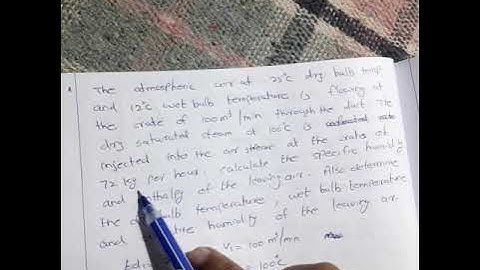 The atmospheric air at 25°c dry bulb temp
and 12°c wet bulb temperature is flowing at
the rate of 100 m³/min through the duct. The
dry saturated steam at 100°c is
injected into the air stream at the rate of
72 kg per hour. calculate the specific humidity
and enthalpy of the leaving air. Also determine
the bulb temperature, wet bulb temperature
and humidity of the leaving air.
V₁ = 100 m³/min
td₁ = 100°c